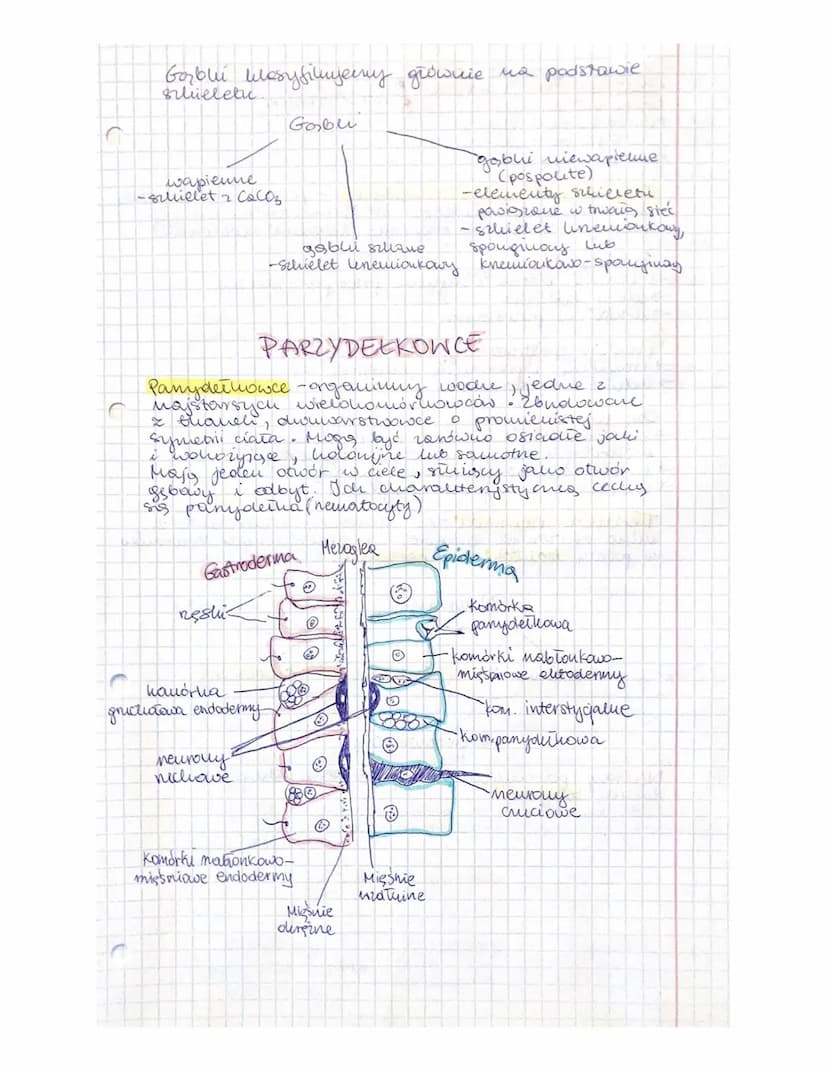 Gąbki klasyfikujemy głównie na podstawie
szkieletu.
Gąbki
wapienne
- szkielet z CaCO3
gąbki szklane
- szkielet krzemionkowy
gąbki niewapienne
(pospolite)
- elementy szkieletu
powiązane w trwałą sieć
- szkielet krzemionkowy,
sponginowy lub
krzemionkowo-sponginowy
PARZYDEŁKOWCE
Parzydełkowce - organizmy wodne, jedne z
najstarszych wielokomórkowców. Zbudowane
z tkanek, dwuwarstwowce o promienistej
symetrii ciała. Mogą być zarówno osiadłe jak
i wolnożyjące, kolonijne lub samotne.
Mają jeden otwór w ciele, służący jako otwór
gębowy i odbyt. Ich charakterystyczną cechą
są parzydełka (nematocyty)
Gastroderma
Mezoglea
Epiderma
rzęski
komórka
parzydełkowa
komórki nabłonkowo-
mięśniowe ektodermy
komórka
gruczołowa endodermy
kom. interstycjalne
kom. parzydełkowa
neurony
ruchowe
neurony
czuciowe
komórki nabłonkowo-
mięśniowe endodermy
Mięśnie
okrężne
Mięśnie
wzdłużne